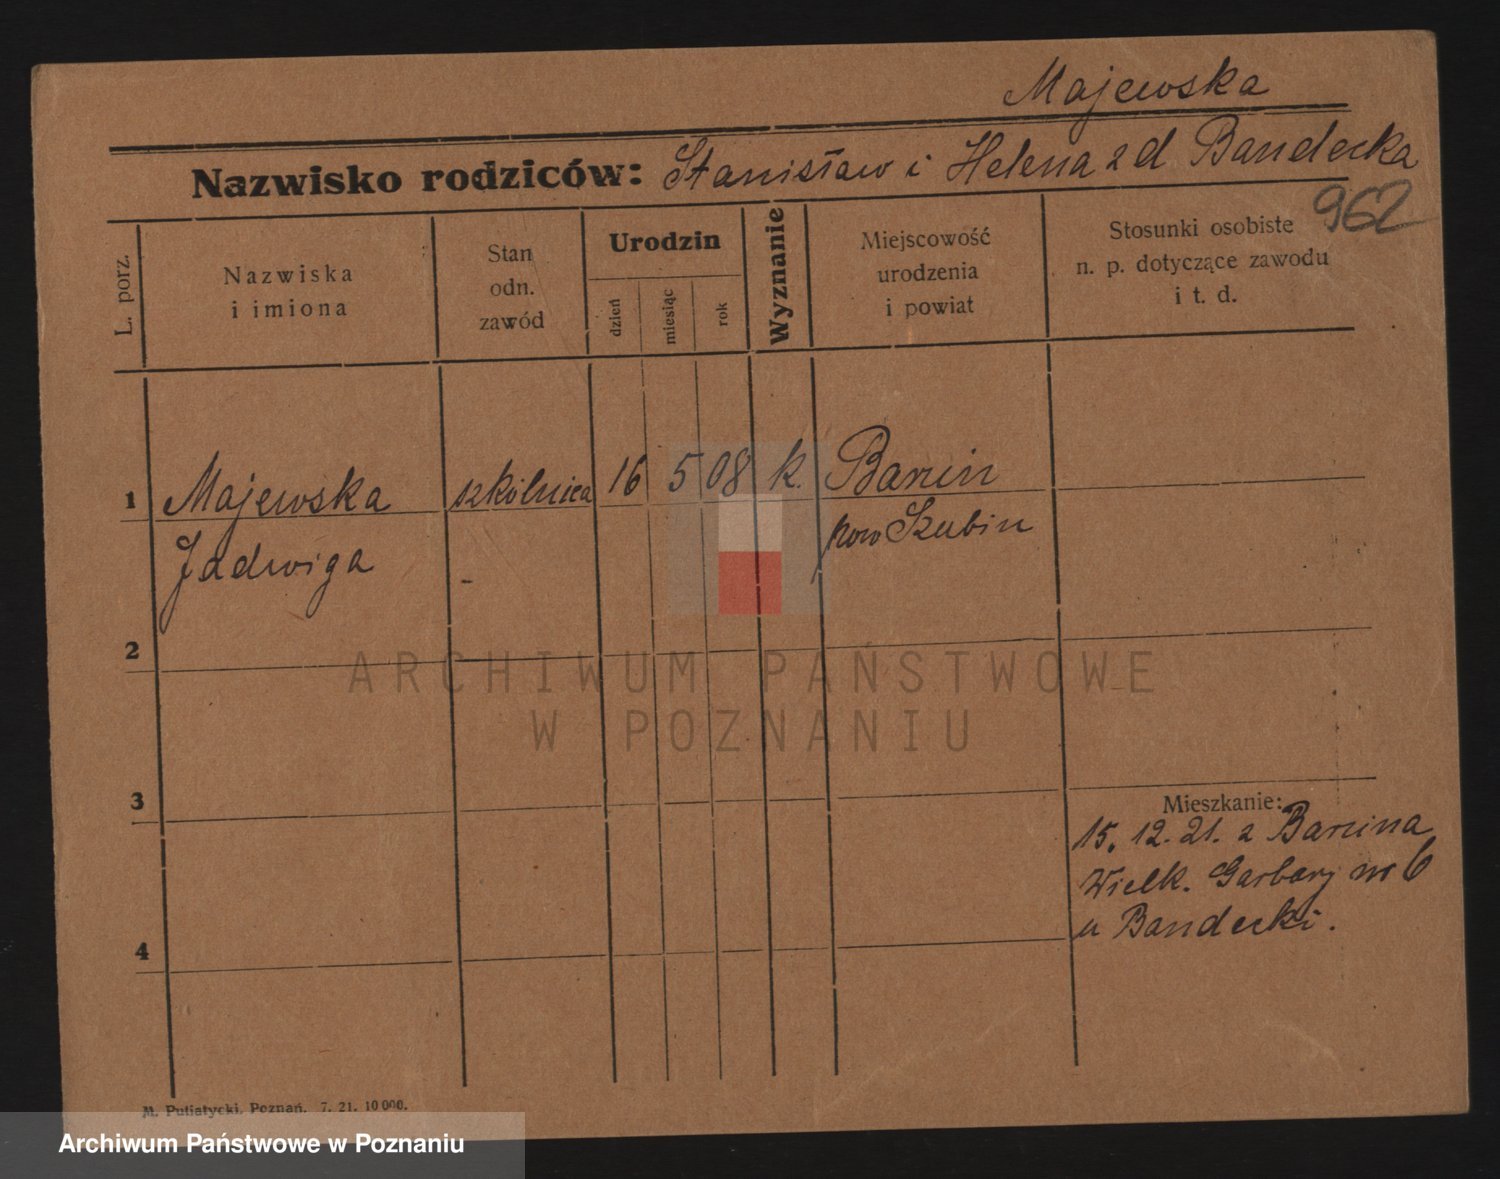 Majewska
Nazwisko rodziców: Stanisław i Helena z d Bandecka
962
L. porz.
Nazwiska
i imiona
Stan
odn.
zawód
Urodzin
dzień
miesiąc
rok
Wyznanie
Miejscowość
urodzenia
i powiat
Stosunki osobiste
n. p. dotyczące zawodu
i t. d.
1 Majewska szkólnica 16 5 08 k. Barcin
Jadwiga - pow Szubin
2
ARCHIWUM PAŃSTWOWE
W POZNANIU
3
Mieszkanie:
15. 12. 21. z Barcina
Wielk. Garbary nr 6
u Bandecki.
4
M. Putiatycki, Poznań. 7. 21. 10 000.
Archiwum Państwowe w Poznaniu